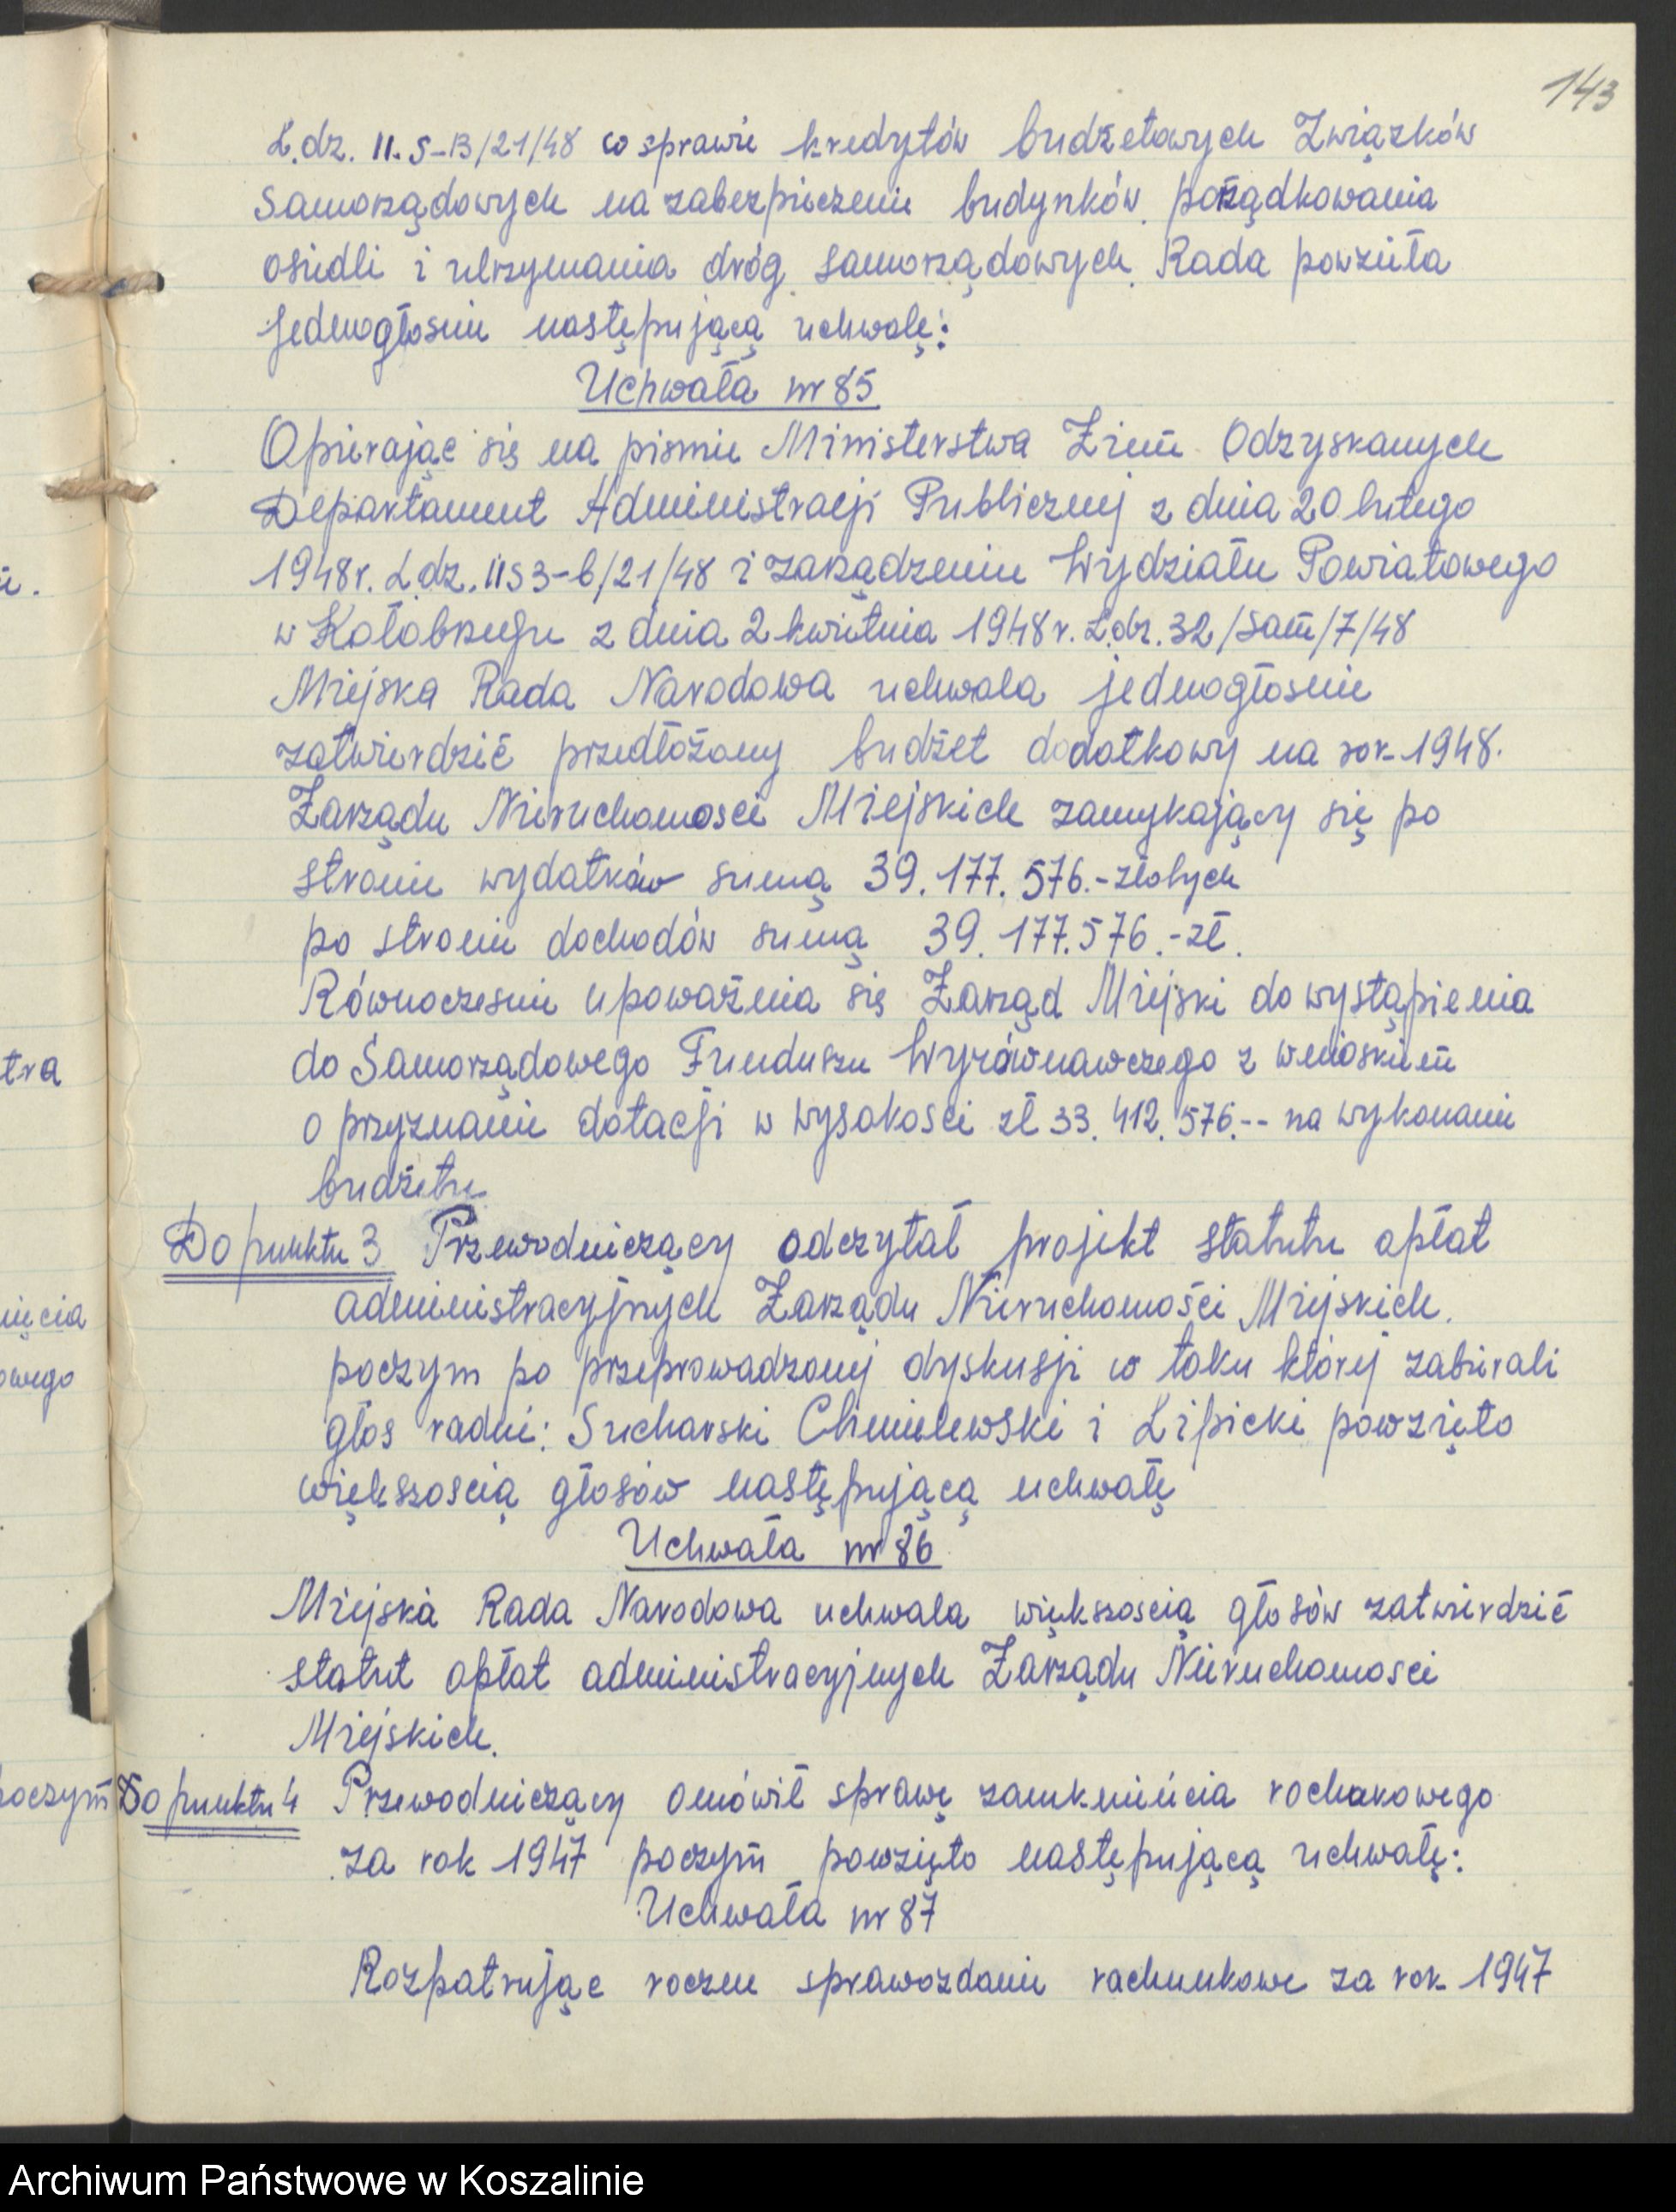 143
L.dz. II.S-B/21/48 w sprawie kredytów budżetowych Związków
Samorządowych na zabezpieczenie budynków, porządkowania
osiedli i utrzymania dróg samorządowych. Rada powzieła
jednogłosnie następującą uchwałę:
Uchwała nr 85
Opierając się na piśmie Ministerstwa Ziem Odzyskanych
Departament Administracji Publicznej z dnia 20 lutego
1948r. L.dz. IIS3-b/21/48 i zarządzeniu Wydziału Powiatowego
w Kołobrzegu z dnia 2 kwietnia 1948r. L.dz. 32/Sam/7/48
Miejska Rada Narodowa uchwala jednogłosnie
zatwierdzić przedłożony budżet dodatkowy na rok 1948.
Zarządu Nieruchomosci Miejskich zamykający się po
stronie wydatków sumą 39.177.576.-złotych
po stronie dochodów sumą 39.177.576.-zł.
Równoczesnie upoważnia się Zarząd Miejski do wystąpienia
do Samorządowego Funduszu Wyrównawczego z wnioskiem
o przyznanie dotacji w wysokosci zł 33.412.576.-- na wykonanie
budżetu
Do punktu 3 Przewodniczący odczytał projekt statutu opłat
administracyjnych Zarządu Nieruchomości Miejskich.
poczym po przeprowadzonej dyskusji w toku której zabierali
głos radni: Sucharski Chmielewski i Lipicki powzięto
większoscią głosów następującą uchwałę
Uchwała nr 86
Miejska Rada Narodowa uchwala większoscią głosów zatwierdzić
statut opłat administracyjnych Zarządu Nieruchomosci
Miejskich.
Do punktu 4 Przewodniczący omówił sprawę zamknięcia rochunkowego
za rok 1947 poczym powzięto następującą uchwałę:
Uchwała nr 87
Rozpatrując roczne sprawozdanie rachunkowe za rok 1947
tra
owego
poczym
Archiwum Państwowe w Koszalinie